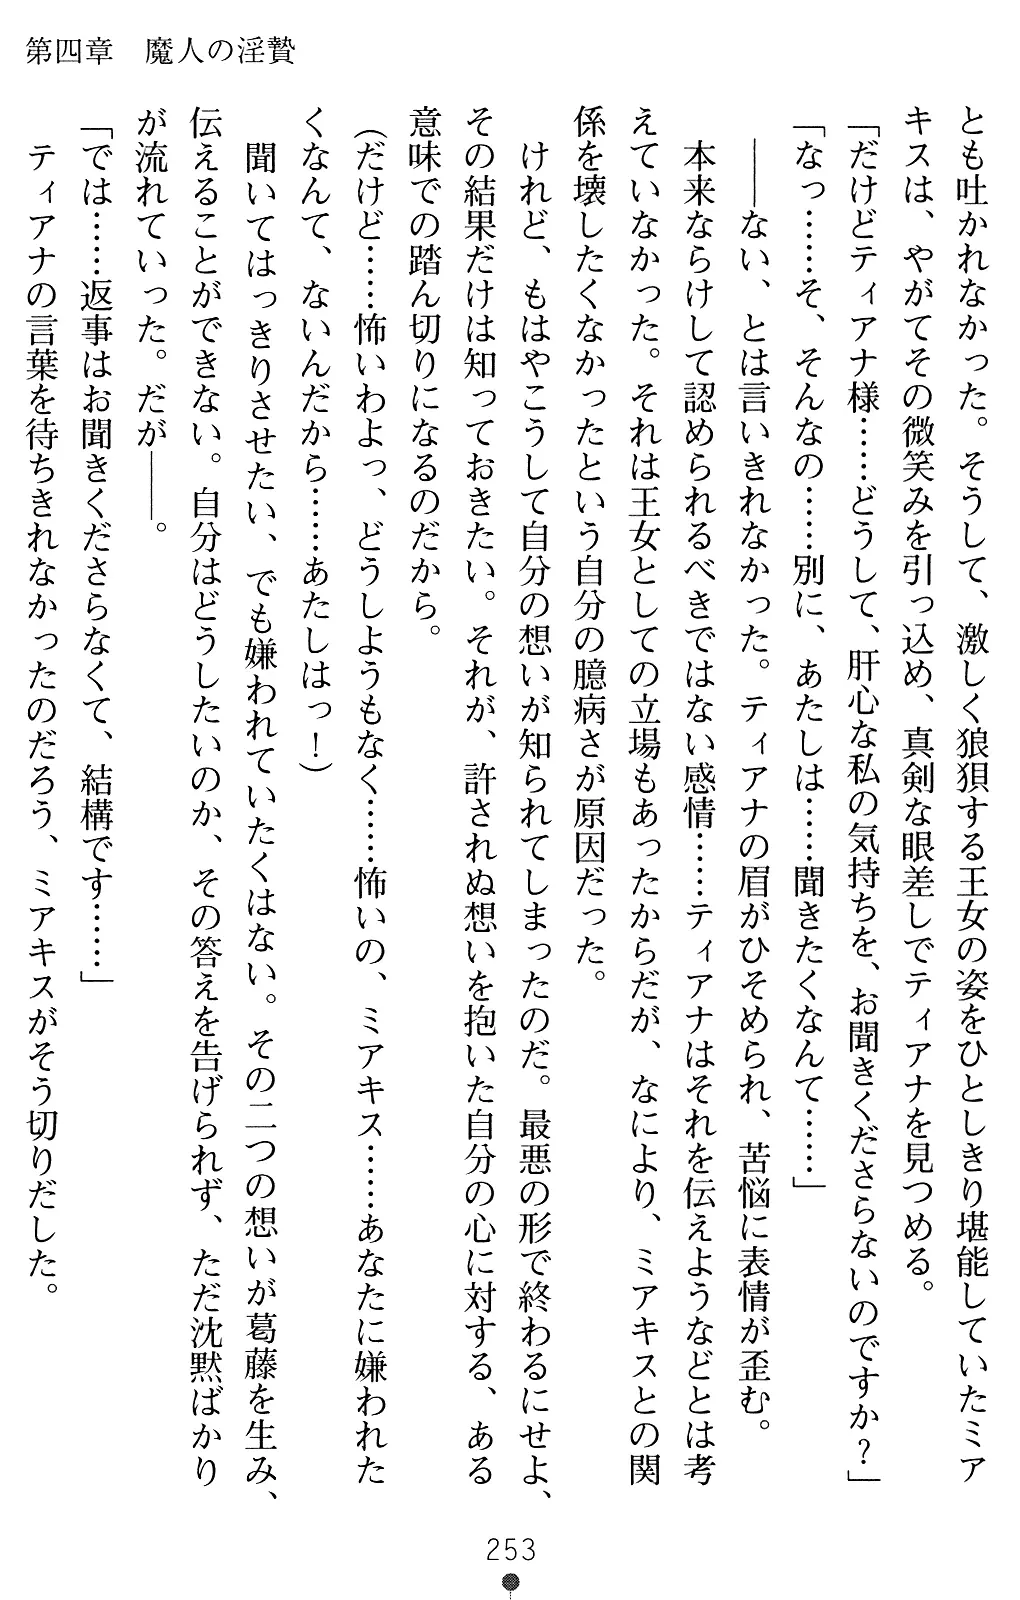 第四章　魔人の淫贄
とも吐かれなかった。そうして、激しく狼狽する王女の姿をひとしきり堪能していたミア
キスは、やがてその微笑みを引っ込め、真剣な眼差しでティアナを見つめる。
「だけどティアナ様……どうして、肝心な私の気持ちを、お聞きくださらないのですか？」
「なっ……そ、そんなの……別に、あたしは……聞きたくなんて……」
　――ない、とは言いきれなかった。ティアナの眉がひそめられ、苦悩に表情が歪む。
　本来ならけして認められるべきではない感情……ティアナはそれを伝えようなどとは考
えていなかった。それは王女としての立場もあったからだが、なにより、ミアキスとの関
係を壊したくなかったという自分の臆病さが原因だった。
　けれど、もはやこうして自分の想いが知られてしまったのだ。最悪の形で終わるにせよ、
その結果だけは知っておきたい。それが、許されぬ想いを抱いた自分の心に対する、ある
意味での踏ん切りになるのだから。
（だけど……怖いわよっ、どうしようもなく……怖いの、ミアキス……あなたに嫌われた
くなんて、ないんだから……あたしはっ！）
　聞いてはっきりさせたい、でも嫌われていたくはない。その二つの想いが葛藤を生み、
伝えることができない。自分はどうしたいのか、その答えを告げられず、ただ沈黙ばかり
が流れていった。だが――。
「では……返事はお聞きくださらなくて、結構です……」
　ティアナの言葉を待ちきれなかったのだろう、ミアキスがそう切りだした。
253